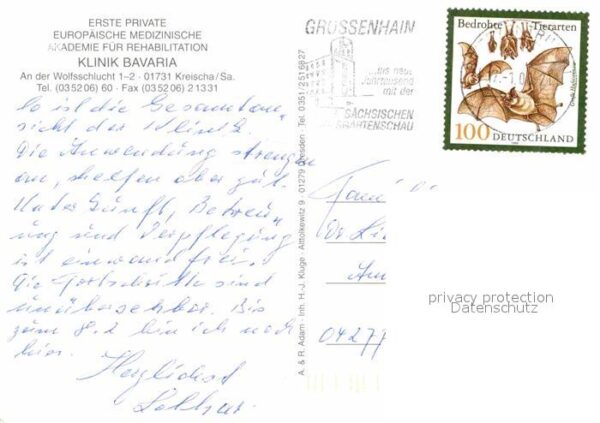 ERSTE PRIVATE
EUROPÄISCHE MEDIZINISCHE
AKADEMIE FÜR REHABILITATION
KLINIK BAVARIA
An der Wolfsschlucht 1–2 · 01731 Kreischa/Sa.
Tel. (035206) 60 · Fax (035206) 21331
So ist die Gesamtan-
sicht der Klinik.
Die Anwendung strengen
an, helfen aber gut.
Unterkunft, Betreu-
ung und Verpflegung
ist einwandfrei.
Die Fortschritte sind
unübersehbar. Bis
zum 8.2 bin ich noch
hier.
Herzlichst
Lothar.
A. & R. Adam · Inh. H.-J. Kluge · Alttolkewitz 9 · 01279 Dresden · Tel. 0351/2516827
GROSSENHAIN
...ins neue
Jahrtausend
mit der
SÄCHSISCHEN
Bedrohte Tierarten
Große Hufeisennase
100 DEUTSCHLAND
Familie
04277
privacy protection
Datenschutz